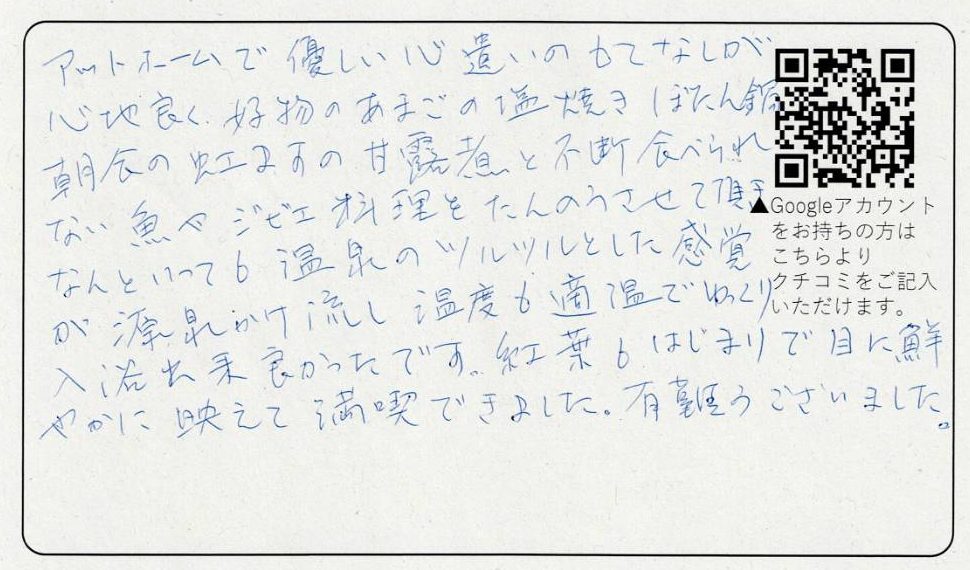 アットホームで優しい心遣いのもてなしが
心地良く、好物のあまごの塩焼きぼたん鍋
朝食の虹ますの甘露煮と不断食べられ
ない魚やジビエ料理をたんのうさせて頂き
なんといっても温泉のツルツルとした感覚
が源泉かけ流し温度も適温でゆっくり
入浴出来良かったです。紅葉もはじまりで目に鮮
やかに映えて満喫できました。有難うございました。
▲Googleアカウント
をお持ちの方は
こちらより
クチコミをご記入
いただけます。